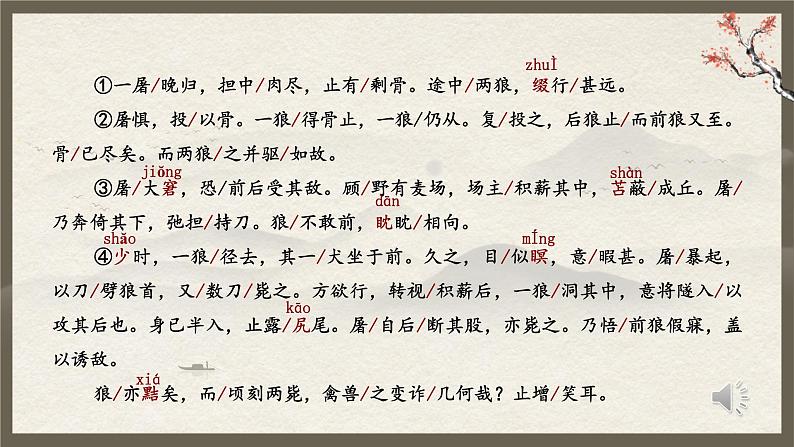 zhuì
①一屠/晚归，担中/肉尽，止有/剩骨。途中/两狼，缀行/甚远。
②屠惧，投/以骨。一狼/得骨止，一狼/仍从。复/投之，后狼止/而前狼又至。
骨/已尽矣。而两狼/之并驱/如故。
jiǒng shàn
③屠/大窘，恐/前后受其敌。顾/野有麦场，场主/积薪其中，苫蔽/成丘。屠/
dān
乃奔倚其下，弛担/持刀。狼/不敢前，眈眈/相向。
shǎo míng
④少时，一狼/径去，其一/犬坐于前。久之，目/似瞑，意/暇甚。屠/暴起，
以刀/劈狼首，又/数刀/毙之。方欲行，转视/积薪后，一狼/洞其中，意将隧入/以
kāo
攻其后也。身已半入，止露/尻尾。屠/自后/断其股，亦毙之。乃悟/前狼假寐，盖
以诱敌。
xiá
狼/亦黠矣，而/顷刻两毙，禽兽/之变诈/几何哉？止增/笑耳。